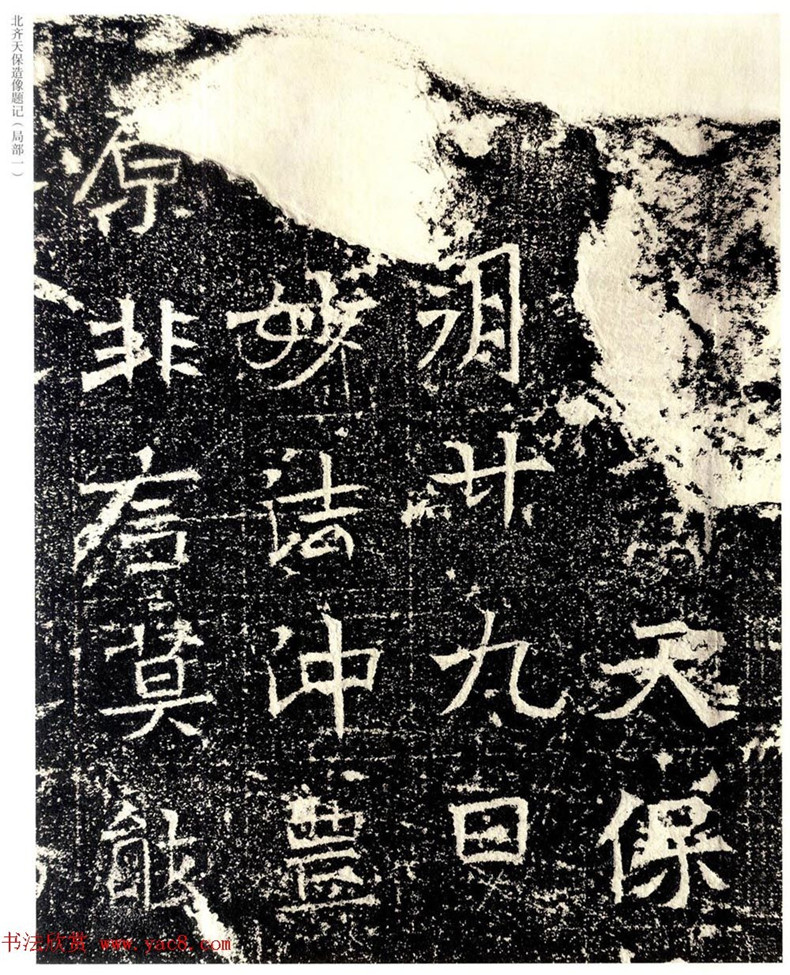 北齐天保造像题记（局部一）
天保
月廿九日
妙法沖豊
原非言莫能
书法欣赏 www.yac8.com